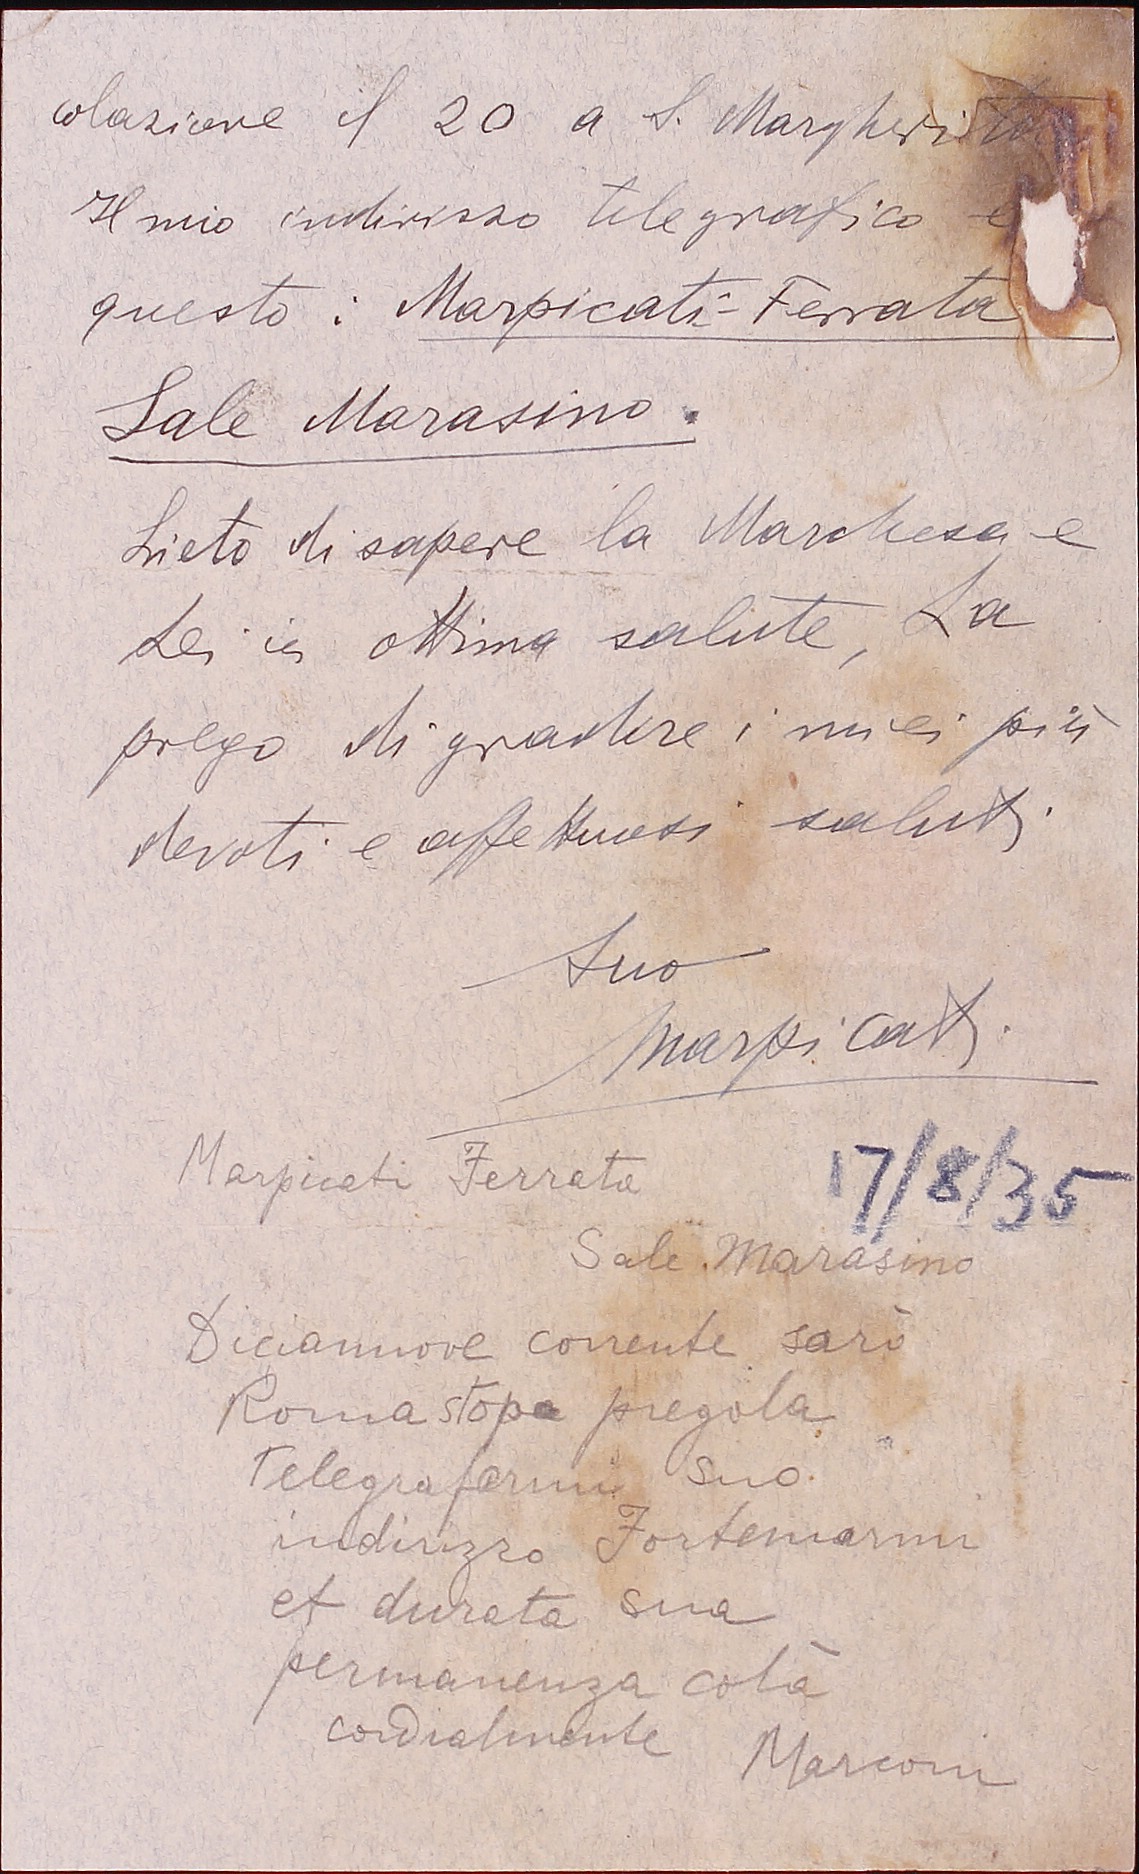 colazione il 20 a S. Margherita
Il mio indirizzo telegrafico è
questo: Marpicati-Ferrata
Sale Marasino.
Lieto di sapere la Marchesa e
Lei in ottima salute, La
prego di gradire i miei più
devoti e affettuosi saluti.
Suo
Marpicati.
Marpicati Ferrata
17/8/35
Sale Marasino
Diciannove corrente sarò
Roma stop pregola
telegrafarmi suo
indirizzo Fortemarmi
et durata sua
permanenza colà
cordialmente
Marconi